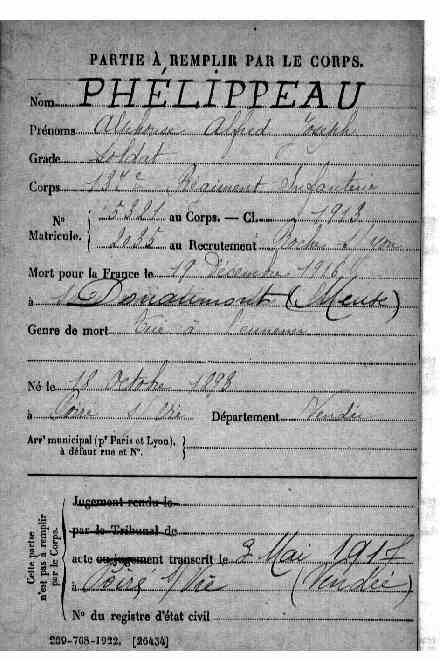 PARTIE À REMPLIR PAR LE CORPS.
Nom PHÉLIPPEAU
Prénoms Alphonse Alfred Joseph
Grade Soldat
Corps 137e Régiment Infanterie
No 5321 au Corps. — Cl. 1913
Matricule. 2035 au Recrutement Roche s/ yon
Mort pour la France le 19 Décembre 1916
à Douaumont (Meuse)
Genre de mort Tué à l'ennemi
Né le 18 Octobre 1893
à Poiré s/ Vie Département Vendée
Arrt municipal (pr Paris et Lyon),
à défaut rue et No.
Cette partie
n'est pas à remplir
par le Corps.
Jugement rendu le
par le Tribunal de
acte ou jugement transcrit le 3 Mai 1917
à Poiré s/ Vie (Vendée)
No du registre d'état civil
269-708-1922. [26434]